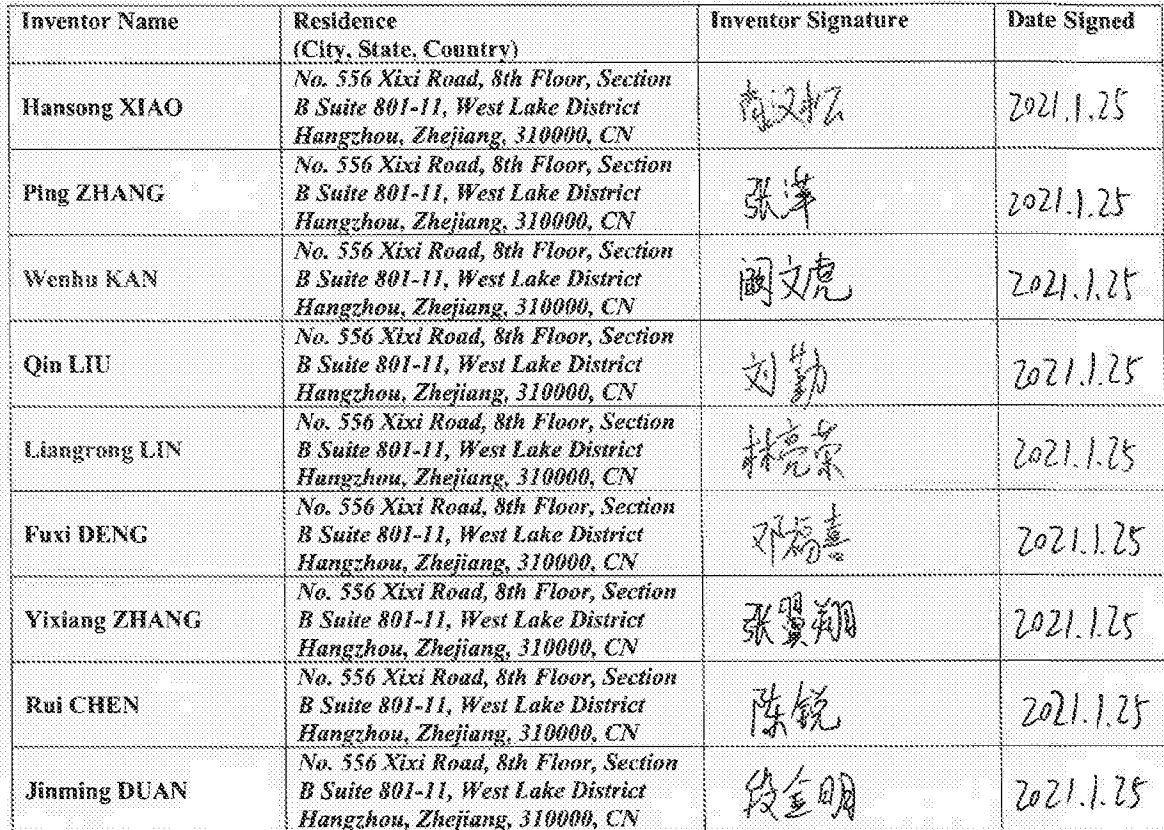 Inventor Name
Residence
(City, State, Country)
Inventor Signature
Date Signed
Hansong XIAO
No. 556 Xixi Road, 8th Floor, Section
B Suite 801-11, West Lake District
Hangzhou, Zhejiang, 310000, CN
肖汉松
2021.1.25
Ping ZHANG
No. 556 Xixi Road, 8th Floor, Section
B Suite 801-11, West Lake District
Hangzhou, Zhejiang, 310000, CN
张萍
2021.1.25
Wenhu KAN
No. 556 Xixi Road, 8th Floor, Section
B Suite 801-11, West Lake District
Hangzhou, Zhejiang, 310000, CN
阚文虎
2021.1.25
Qin LIU
No. 556 Xixi Road, 8th Floor, Section
B Suite 801-11, West Lake District
Hangzhou, Zhejiang, 310000, CN
刘勤
2021.1.25
Liangrong LIN
No. 556 Xixi Road, 8th Floor, Section
B Suite 801-11, West Lake District
Hangzhou, Zhejiang, 310000, CN
林亮荣
2021.1.25
Fuxi DENG
No. 556 Xixi Road, 8th Floor, Section
B Suite 801-11, West Lake District
Hangzhou, Zhejiang, 310000, CN
邓福喜
2021.1.25
Yixiang ZHANG
No. 556 Xixi Road, 8th Floor, Section
B Suite 801-11, West Lake District
Hangzhou, Zhejiang, 310000, CN
张翼翔
2021.1.25
Rui CHEN
No. 556 Xixi Road, 8th Floor, Section
B Suite 801-11, West Lake District
Hangzhou, Zhejiang, 310000, CN
陈锐
2021.1.25
Jinming DUAN
No. 556 Xixi Road, 8th Floor, Section
B Suite 801-11, West Lake District
Hangzhou, Zhejiang, 310000, CN
段金明
2021.1.25